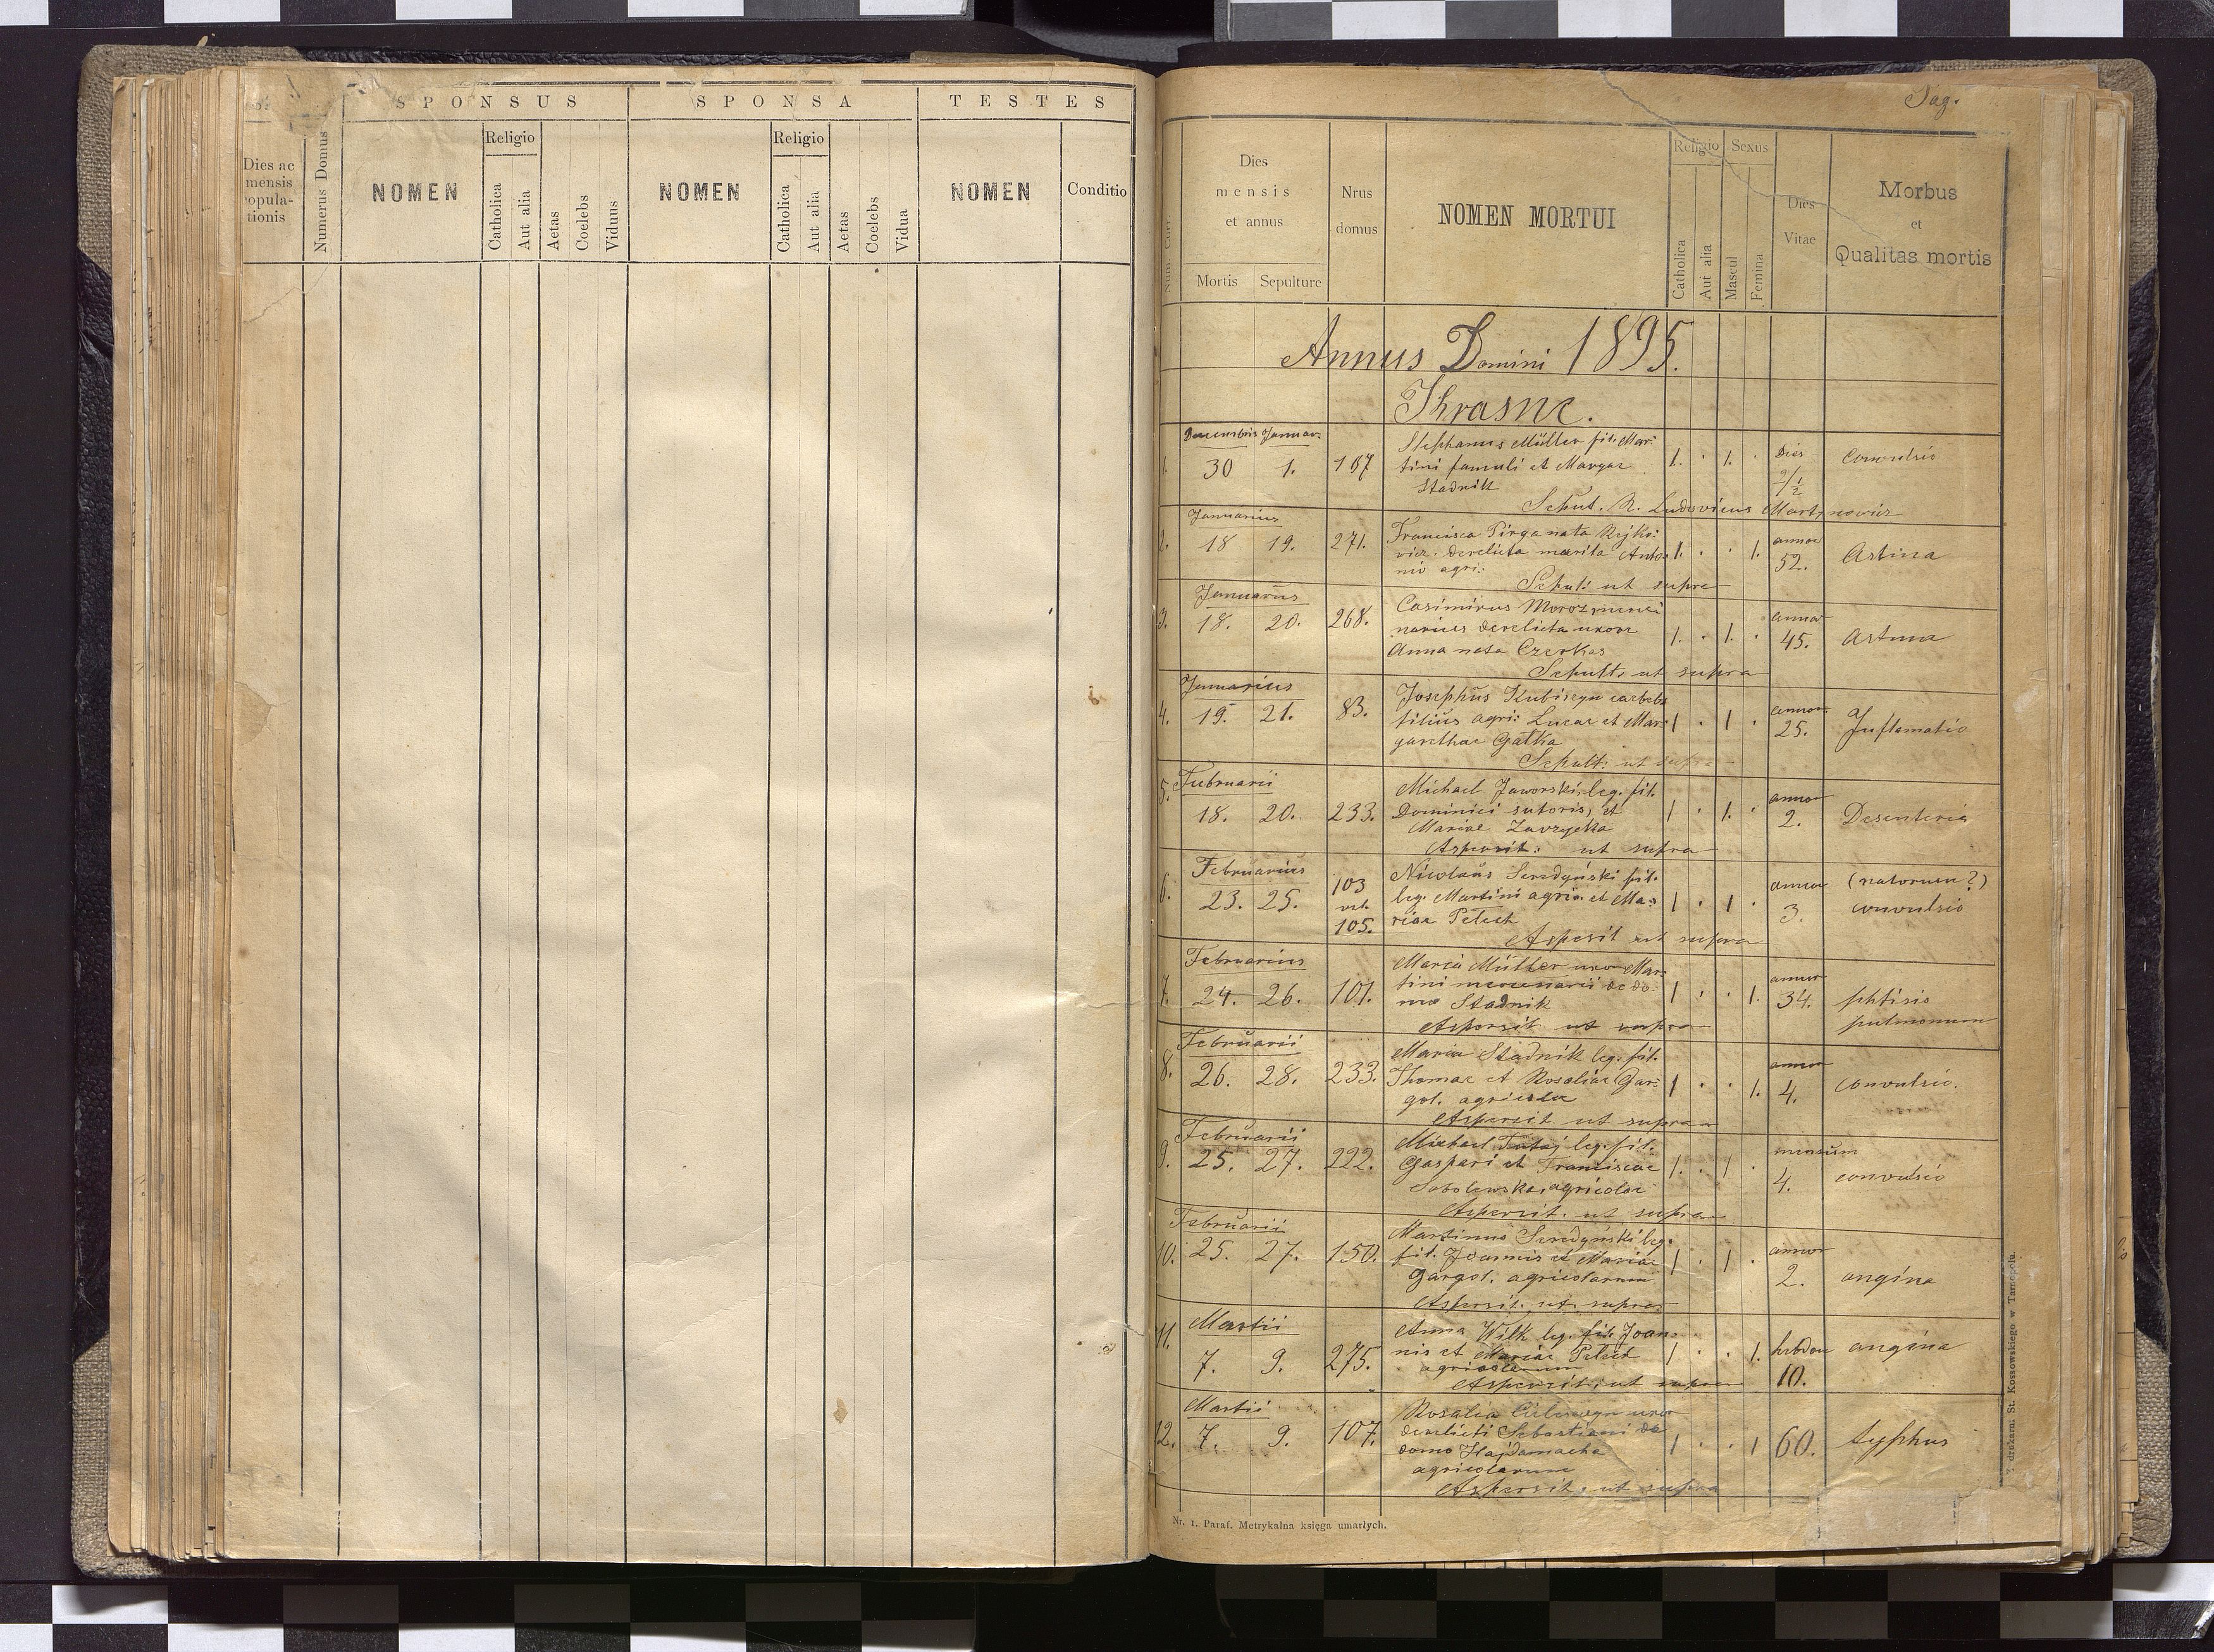 SPONSUS
SPONSA
TESTES
Dies ac mensis copulationis
Numerus Domus
NOMEN
Religio
Catholica
Aut alia
Aetas
Coelebs
Viduus
NOMEN
Religio
Catholica
Aut alia
Aetas
Coelebs
Vidua
NOMEN
Conditio
Pag.
Dies
mensis
et annus
Mortis
Sepulture
Nrus
domus
NOMEN MORTUI
Religio
Catholica
Aut alia
Sexus
Mascul
Femina
Dies
Vitae
Morbus
et
Qualitas mortis
Annus Domini 1895.
Krasne.
Decembris Januar.
1. 30 1. 107 Stephanus Müller fil. Mar-
tini famuli et Margar
Stadnik
1. . 1. . Dies 9/½ Convulsio
Sepul. R. Ludovicus Martynowicz
Januarius
2. 18 19. 271. Francisca Pirga nata Rejko-
wicz. derelicta marita Anto-
nio agri:
1. . . 1. annor 52. Astma
Sepul: ut supra
Januarius
3. 18. 20. 268. Casimirus Moroz merce
narius derelicta uxore
Anna nata Czerkas
1. . 1. . annor 45. Astma
Sepult. ut supra
Januarius
4. 19. 21. 83. Josephus Kubiszyn caelebs
filius agri: Lucae et Mar-
garethae Gałka
1 . 1 . annor. 25. Inflamatio
Sepult: ut supra
Februarii
5. 18. 20. 233. Michael Jaworski, leg. fil.
Dominici sutoris, et
Mariae Zavzycka
1 . 1. . annor 2. Desenteria
Aspersit. ut supra
Februarius
6. 23. 25. 103 vel 105. Nicolaus Seredyński fil.
leg. Martini agric. et Ma-
riae Petech
1 . 1 . annor 3. (natorum?) convulsio
Aspersit ut supra
Februarius
7. 24. 26. 101. Maria Müller uxor Mar-
tini mercenarii de do-
mo Stadnik
1 . . 1. annor 34. phtisis pulmonum
Aspersit ut supra
Februarii
8. 26. 28. 233. Maria Stadnik leg. fil.
Thomae et Rosaliae Gar-
gol. agricolae
1 . . 1. annor 4. Convulsio.
Aspersit ut supra
Februarii
9. 25. 27. 222. Michael Tataj leg. fil.
Gaspari et Franciscae
Sobolewska, agricolae
1. . 1 . mensium 4. convulsio
Aspersit. ut supra
Februarii
10. 25. 27. 150. Martinus Seredyński leg.
fil. Joannis et Mariae
Gargol. agricolarum
1 . 1 . annor 2. angina
Aspersit. ut supra
Martii
11. 7. 9. 275. Anna Wilk leg. fil. Joan-
nis et Mariae Petech
agricolarum
1 . . 1. hebdom 10. angina
Aspersit. ut supra
Martii
12. 7. 9. 107. Rosalia uxor
derelicti Sebastiani de
domo Hajdamacha
agricolarum
1 . . 1 60. typhus
Aspersit. ut supra
Nr. 1. Paraf. Metrykalna księga umarłych.
Z drukarni St. Kossowskiego w Tarnopolu.